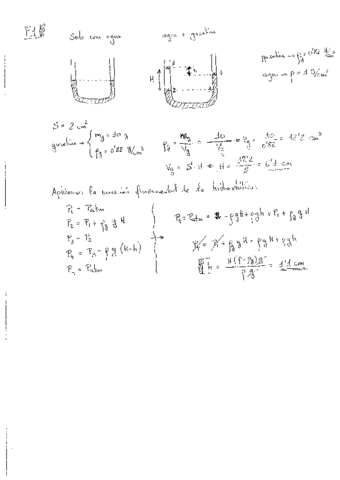 F1
Solo con agua
agua + gasolina
gasolina → ρg = 0'82 g/cm³
agua → ρ = 1 g/cm³
H
h
1
2
3
4
S = 2 cm²
gasolina → { mg = 10 g
ρg = 0'82 g/cm³
ρg = mg/Vg = 10/Vg → Vg = 10/0'82 = 12'2 cm³
Vg = S·H ⇒ H = 12'2/2 = 6'1 cm
Aplicamos la ecuación fundamental de la hidrostática:
P1 = Patm
P2 = P1 + ρg g H
P3 = P2
P4 = P3 - ρg (H-h)
P4 = Patm
P4 = Patm = - ρgH + ρgh + P1 + ρg g H
P1 = P1 + ρg g H - ρgH + ρgh
h = H(ρ-ρg)g / ρg = 1'1 cm